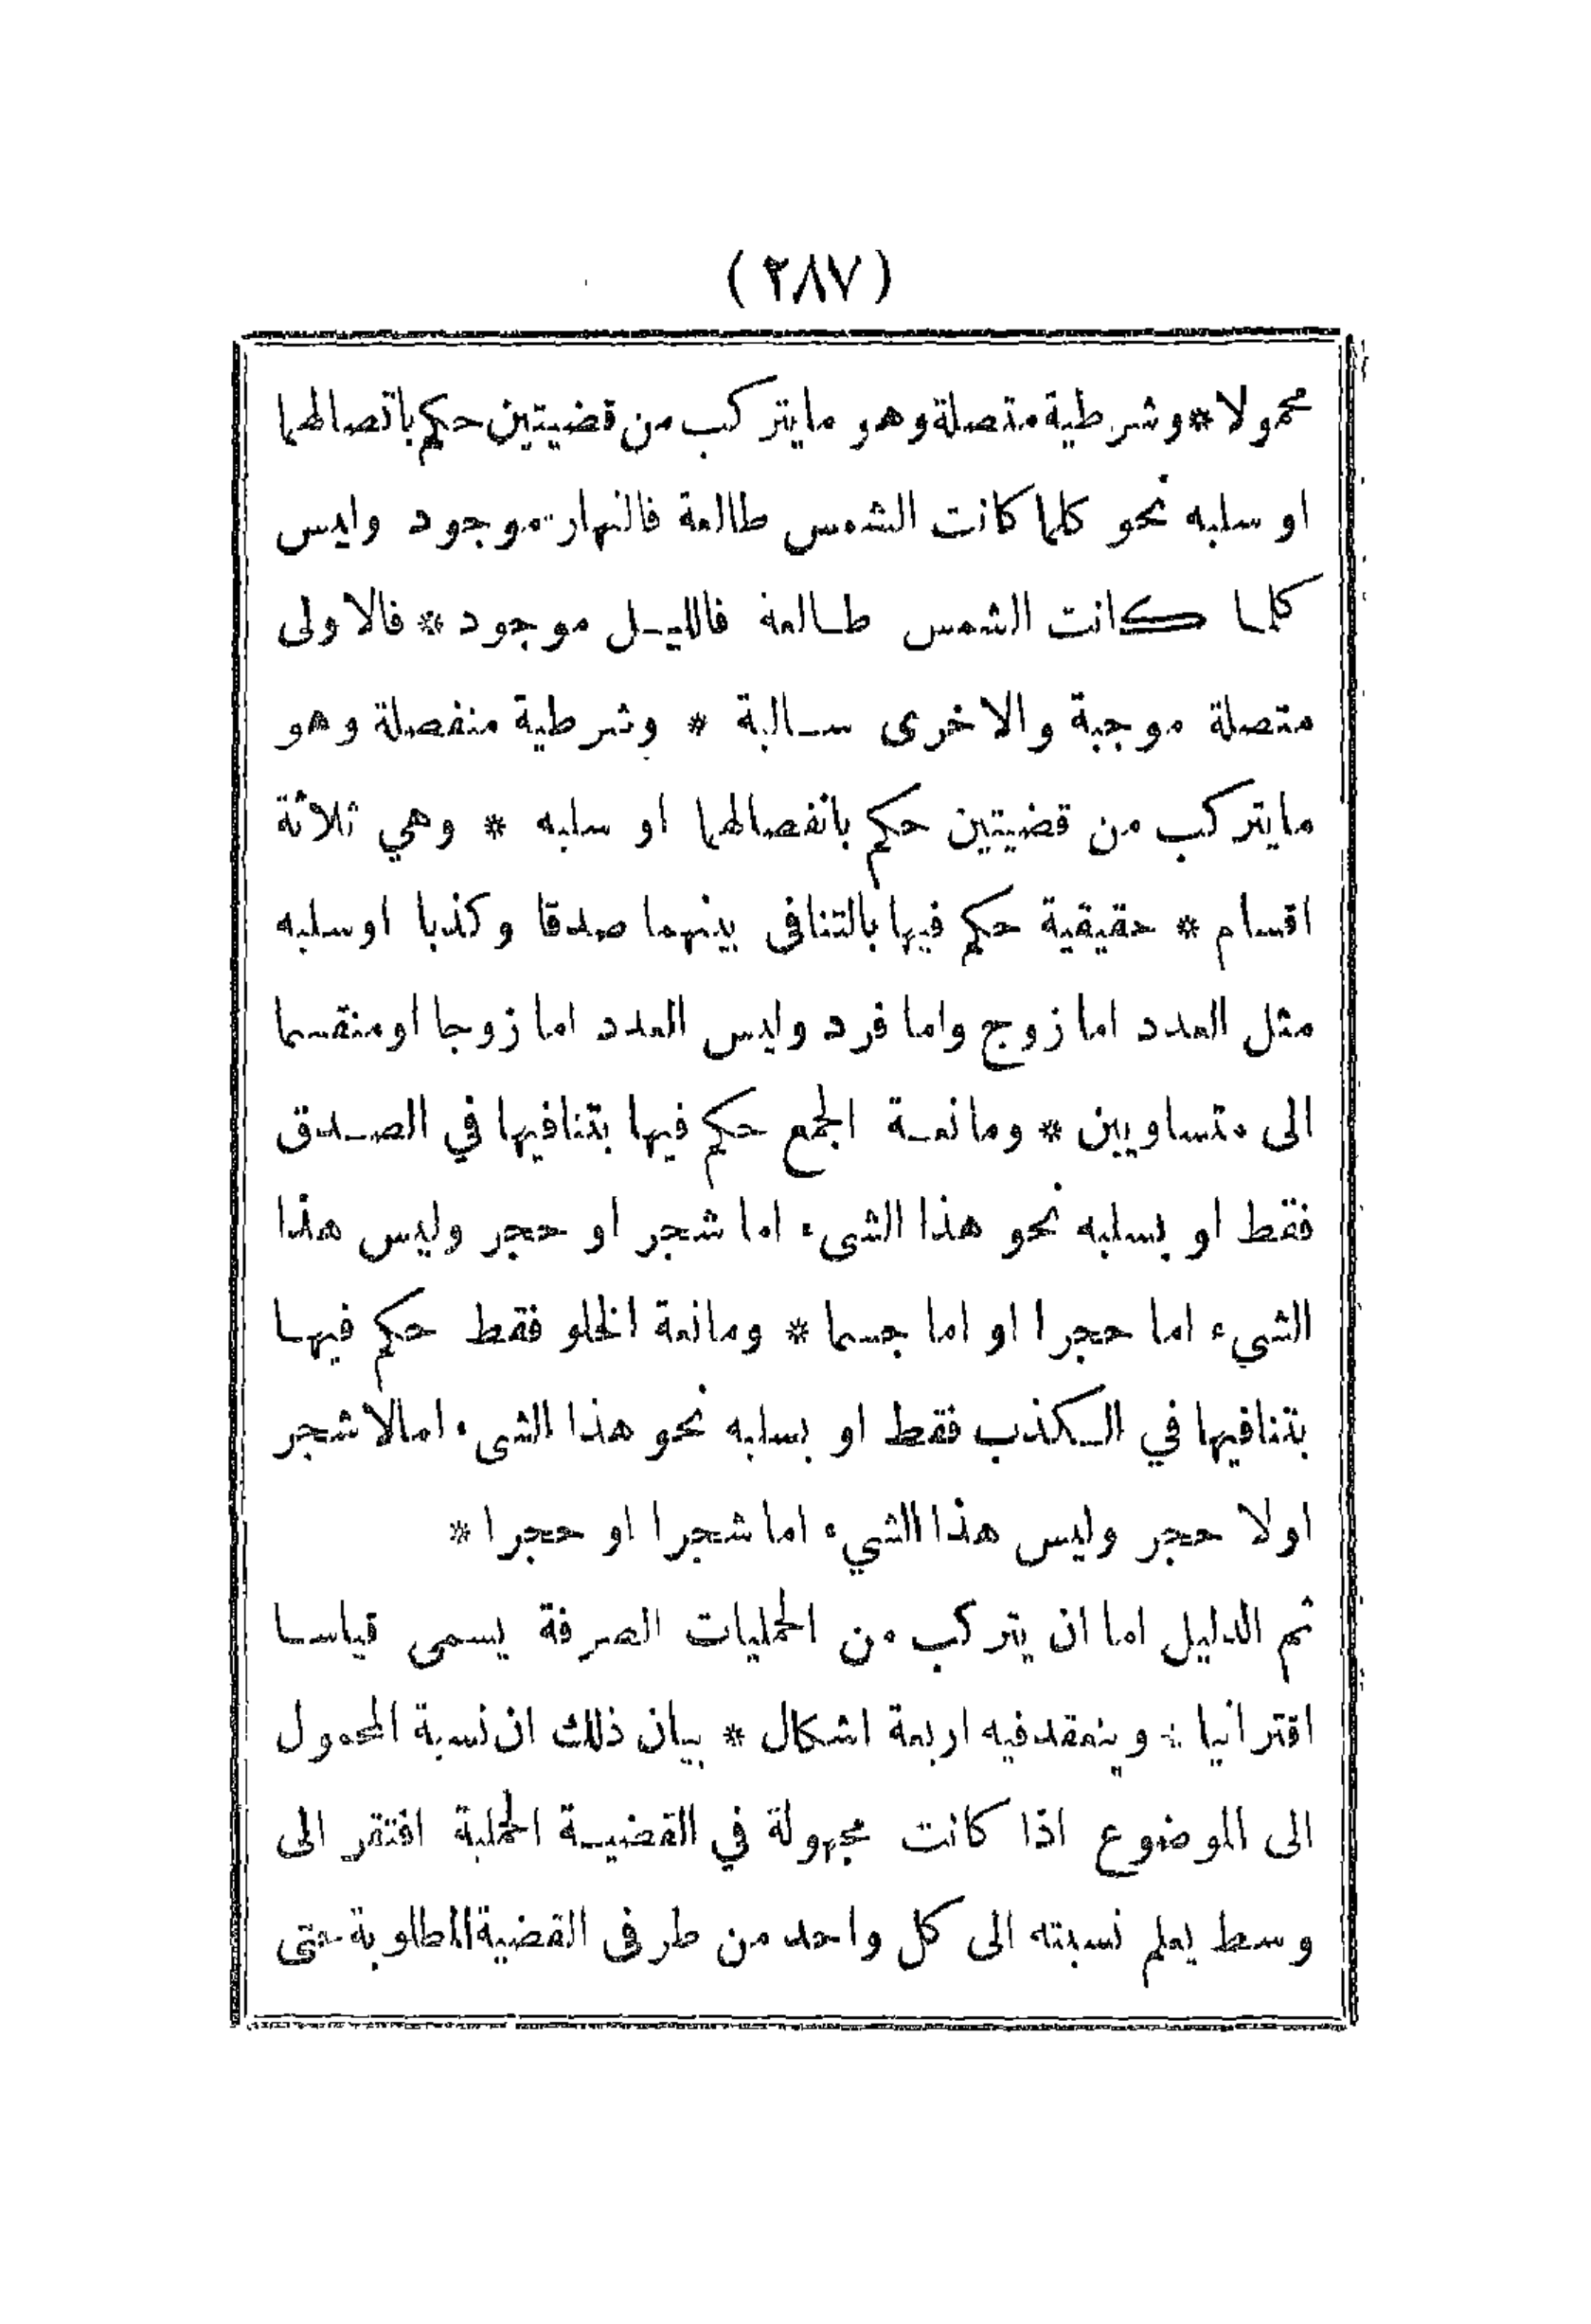 (٢٨٧)
محمولا * وشرطية متصلة وهو مايتركب من قضيتين حكم باتصالهما
او سلبه نحو كلما كانت الشمس طالعة فالنهار موجود وليس
كلما كانت الشمس طالعة فالليل موجود * فالاولى
متصلة موجبة والاخرى سالبة * وشرطية منفصلة وهو
مايتركب من قضيتين حكم بانفصالهما او سلبه * وهي ثلاثة
اقسام * حقيقية حكم فيها بالتنافى بينهما صدقا وكذبا اوسلبه
مثل العدد اما زوج واما فرد وليس العدد اما زوجا اومنقسما
الى متساويين * ومانعة الجمع حكم فيها بتنافيها في الصدق
فقط او بسلبه نحو هذا الشىء اما شجر او حجر وليس هذا
الشيء اما حجرا او اما جسما * ومانعة الخلو فقط حكم فيها
بتنافيها في الكذب فقط او بسلبه نحو هذا الشىء امالا شجر
اولا حجر وليس هذا الشيء اما شجرا او حجرا *
ثم الدليل اما ان يتركب من الحمليات الصرفة يسمى قياسا
اقترانيا * وينعقد فيه اربعة اشكال * بيان ذلك ان نسبة المحمول
الى الموضوع اذا كانت مجهولة في القضية الحملية افتقر الى
وسط يعلم نسبته الى كل واحد من طرفى القضية المطلوبة حتى